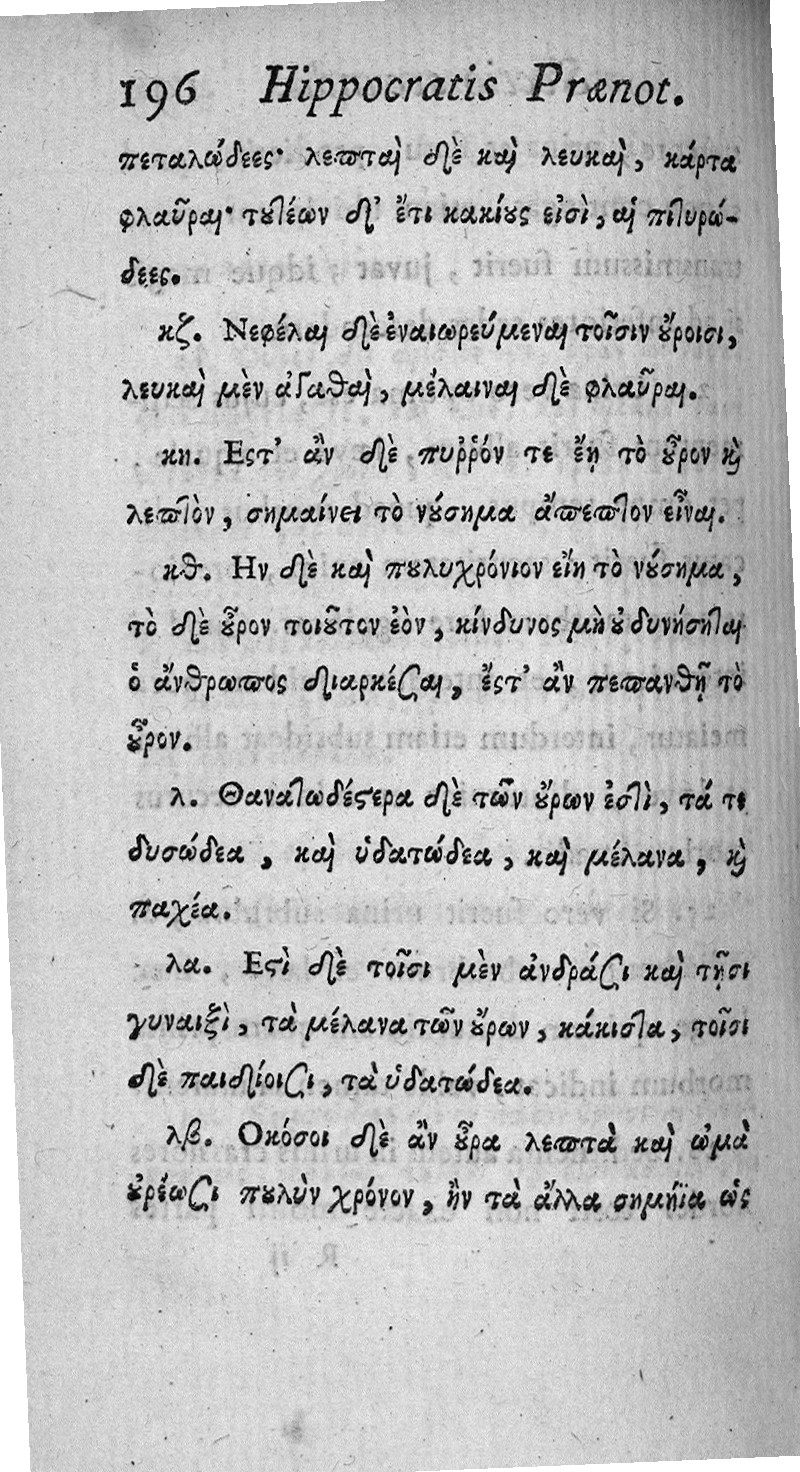 196 Hippocratis Prænot.
πεταλώδεες· λεπταὶ δὲ καὶ λευκαὶ, κάρτα
φλαῦραι· τουτέων δ' ἔτι κακίους εἰσὶ, αἱ πιτυρώ-
δεες.
κζ. Νεφέλαι δὲ ἐναιωρεύμεναι τοῖσιν οὔροισι,
λευκαὶ μὲν ἀγαθαὶ, μέλαιναι δὲ φλαῦραι.
κη. Εστ' ἂν δὲ πυῤῥόν τε ἔῃ τὸ οὖρον καὶ
λεπτὸν, σημαίνει τὸ νούσημα ἄπεπτον εἶναι.
κθ. Ην δὲ καὶ πουλυχρόνιον εἴη τὸ νούσημα,
τὸ δὲ οὖρον τοιοῦτον ἐὸν, κίνδυνος μὴ οὐ δυνήσηται
ὁ ἄνθρωπος διαρκέσαι, ἔστ' ἂν πεπανθῇ τὸ
οὖρον.
λ. Θανατωδέστερα δὲ τῶν οὔρων ἐστὶ, τά τε
δυσώδεα, καὶ ὑδατώδεα, καὶ μέλανα, καὶ
παχέα.
λα. Εστὶ δὲ τοῖσι μὲν ἀνδράσι καὶ τῇσι
γυναιξὶ, τὰ μέλανα τῶν οὔρων, κάκιστα, τοῖσι
δὲ παιδίοισι, τὰ ὑδατώδεα.
λβ. Οκόσοι δὲ ἂν οὖρα λεπτὰ καὶ ὠμὰ
οὐρέωσι πουλὺν χρόνον, ἢν τὰ ἄλλα σημήϊα ὡς